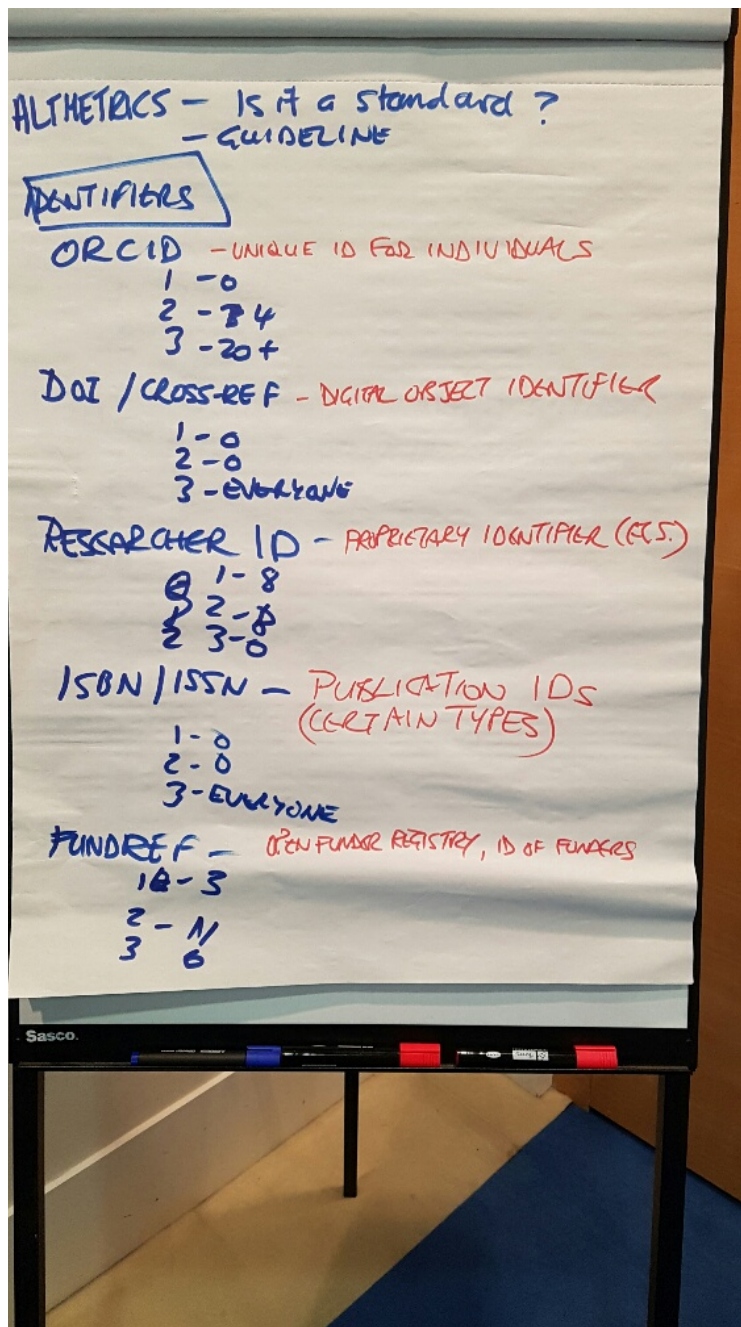 ALTMETRICS - Is it a standard ?
- GUIDELINE
IDENTIFIERS
ORCID - UNIQUE ID FOR INDIVIDUALS
1 - 0
2 - 4
3 - 20+
DOI / CROSS-REF - DIGITAL OBJECT IDENTIFIER
1 - 0
2 - 0
3 - EVERYONE
RESEARCHER ID - PROPRIETARY IDENTIFIER
1 - 8
2 - 8
3 - 0
ISBN / ISSN - PUBLICATION IDs
(CERTAIN TYPES)
1 - 0
2 - 0
3 - EVERYONE
FUNDREF - OPEN FUNDER REGISTRY, ID OF FUNDERS
1 - 3
2 - 11
3 6
Sasco.